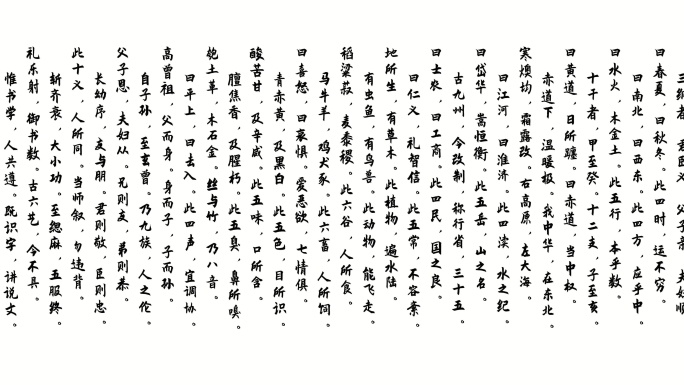 三纲者，君臣义。父子亲，夫妇顺
曰春夏，曰秋冬。此四时，运不穷。
曰南北，曰西东。此四方，应乎中。
曰水火，木金土。此五行，本乎数。
十干者，甲至癸。十二支，子至亥。
曰黄道，日所躔。曰赤道，当中权。
赤道下，温暖极。我中华，在东北。
寒燠均，霜露改。右高原，左大海。
曰江河，曰淮济。此四渎，水之纪。
曰岱华，嵩恒衡。此五岳，山之名。
古九州，今改制。称行省，三十五。
曰士农，曰工商。此四民，国之良。
曰仁义，礼智信。此五常，不容紊。
地所生，有草木。此植物，遍水陆。
有虫鱼，有鸟兽。此动物，能飞走。
稻粱菽，麦黍稷。此六谷，人所食。
马牛羊，鸡犬豕。此六畜，人所饲。
曰喜怒，曰哀惧。爱恶欲，七情俱。
青赤黄，及黑白。此五色，目所识。
酸苦甘，及辛咸。此五味，口所含。
膻焦香，及腥朽。此五臭，鼻所嗅。
匏土革，木石金。丝与竹，乃八音。
曰平上，曰去入。此四声，宜调协。
高曾祖，父而身。身而子，子而孙。
自子孙，至玄曾。乃九族，人之伦。
父子恩，夫妇从。兄则友，弟则恭。
长幼序，友与朋。君则敬，臣则忠。
此十义，人所同。当师叙，勿违背。
斩齐衰，大小功。至缌麻，五服终。
礼乐射，御书数。古六艺，今不具。
惟书学，人共遵。既识字，讲说文。